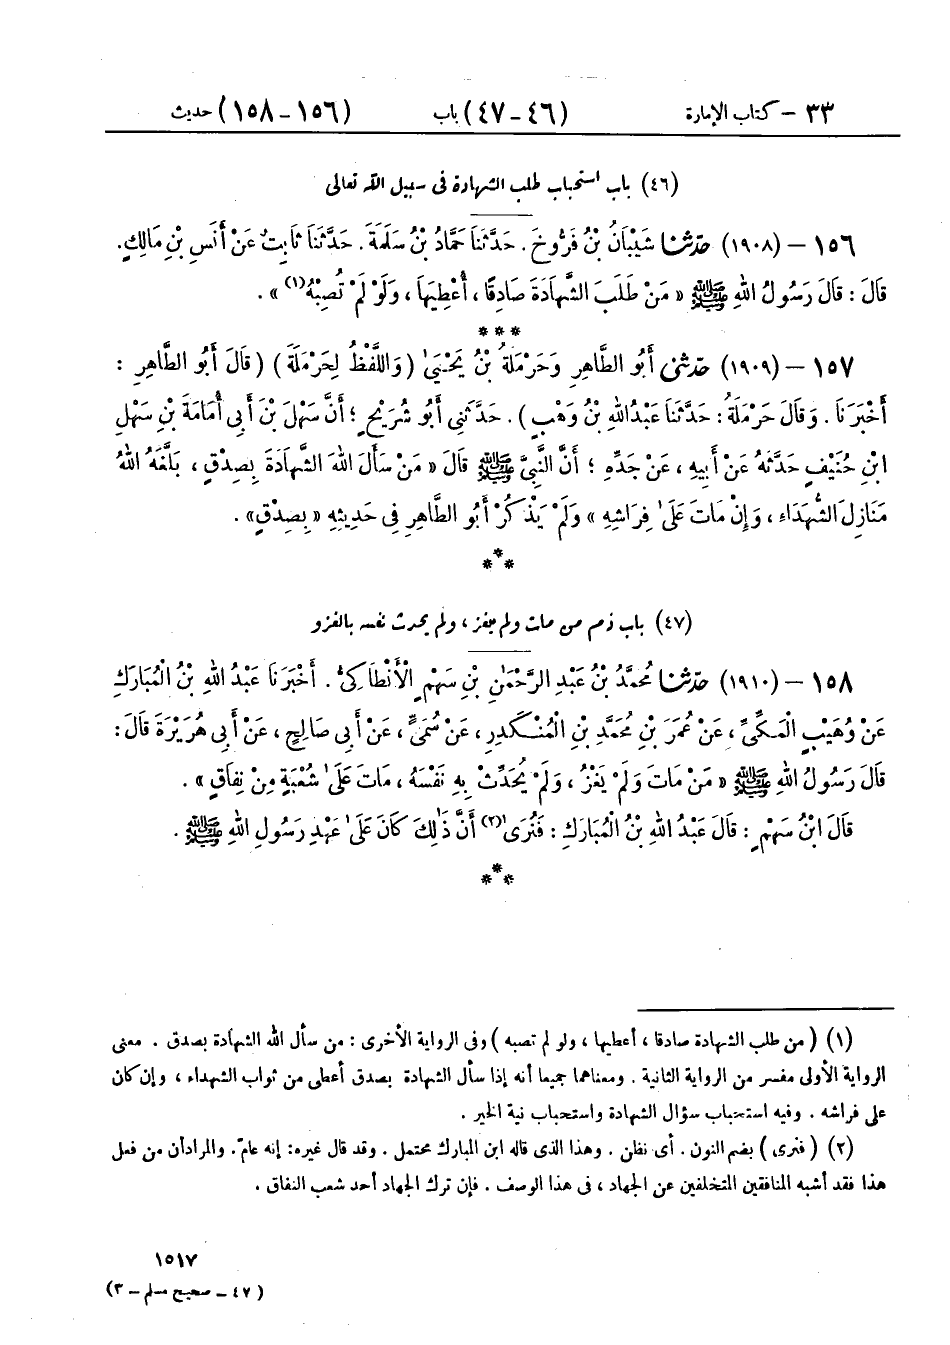 ٣٣ - كتاب الإمارة (٤٦-٤٧) باب (١٥٦-١٥٨) حديث
(٤٦) باب استحباب طلب الشهادة فى سبيل الله تعالى
١٥٦ - (١٩٠٨) حَدَّثَنَا شَيْبَانُ بْنُ فَرُّوخَ . حَدَّثَنَا حَمَّادُ بْنُ سَلَمَةَ . حَدَّثَنَا ثَابِتٌ عَنْ أَنَسِ بْنِ مَالِكٍ .
قَالَ : قَالَ رَسُولُ اللهِ ﷺ « مَنْ طَلَبَ الشَّهَادَةَ صَادِقًا ، أُعْطِيَهَا ، وَلَوْ لَمْ تُصِبْهُ(١) » .
***
١٥٧ - (١٩٠٩) حَدَّثَنِي أَبُو الطَّاهِرِ وَحَرْمَلَةُ بْنُ يَحْيَىٰ ( وَاللَّفْظُ لِحَرْمَلَةَ ) ( قَالَ أَبُو الطَّاهِرِ :
أَخْبَرَنَا . وَقَالَ حَرْمَلَةُ : حَدَّثَنَا عَبْدُ اللهِ بْنُ وَهْبٍ ) . حَدَّثَنِي أَبُو شُرَيْحٍ ؛ أَنَّ سَهْلَ بْنَ أَبِى أُمَامَةَ بْنِ سَهْلِ
ابْنِ حُنَيْفٍ حَدَّثَهُ عَنْ أَبِيهِ ، عَنْ جَدِّهِ ؛ أَنَّ النَّبِىَّ ﷺ قَالَ « مَنْ سَأَلَ اللهَ الشَّهَادَةَ بِصِدْقٍ ، بَلَّغَهُ اللهُ
مَنَازِلَ الشُّهَدَاءِ ، وَإِنْ مَاتَ عَلَىٰ فِرَاشِهِ » وَلَمْ يَذْكُرْ أَبُو الطَّاهِرِ فِى حَدِيثِهِ « بِصِدْقٍ» .
***
(٤٧) باب ذم من مات ولم يغز ، ولم يحدث نفسه بالغزو
١٥٨ - (١٩١٠) حَدَّثَنَا مُحَمَّدُ بْنُ عَبْدِ الرَّحْمٰنِ بْنِ سَهْمٍ الْأَنْطَاكِىُّ . أَخْبَرَنَا عَبْدُ اللهِ بْنُ الْمُبَارَكِ
عَنْ وُهَيْبٍ الْمَكِّىِّ ، عَنْ عُمَرَ بْنِ مُحَمَّدِ بْنِ الْمُنْكَدِرِ ، عَنْ سُمَىٍّ ، عَنْ أَبِى صَالِحٍ ، عَنْ أَبِى هُرَيْرَةَ قَالَ :
قَالَ رَسُولُ اللهِ ﷺ « مَنْ مَاتَ وَلَمْ يَغْزُ ، وَلَمْ يُحَدِّثْ بِهِ نَفْسَهُ ، مَاتَ عَلَىٰ شُعْبَةٍ مِنْ نِفَاقٍ » .
قَالَ ابْنُ سَهْمٍ : قَالَ عَبْدُ اللهِ بْنُ الْمُبَارَكِ : فَنُرَىٰ(٢) أَنَّ ذٰلِكَ كَانَ عَلَىٰ عَهْدِ رَسُولِ اللهِ ﷺ .
***
(١) ( من طلب الشهادة صادقا ، أعطيها ، ولو لم تصبه ) وفى الرواية الأخرى : من سأل الله الشهادة بصدق . معنى
الرواية الأولى مفسر من الرواية الثانية . ومعناهما جميعا أنه إذا سأل الشهادة بصدق أعطى من ثواب الشهداء ، وإن كان
على فراشه . وفيه استحباب سؤال الشهادة واستحباب نية الخير .
(٢) ( فنرى ) بضم النون . أى نظن . وهذا الذى قاله ابن المبارك محتمل . وقد قال غيره: إنه عامّ. والمراد أن من فعل
هذا فقد أشبه المنافقين المتخلفين عن الجهاد ، فى هذا الوصف . فإن ترك الجهاد أحد شعب النفاق .
١٥١٧
( ٤٧ - صحيح مسلم - ٣)